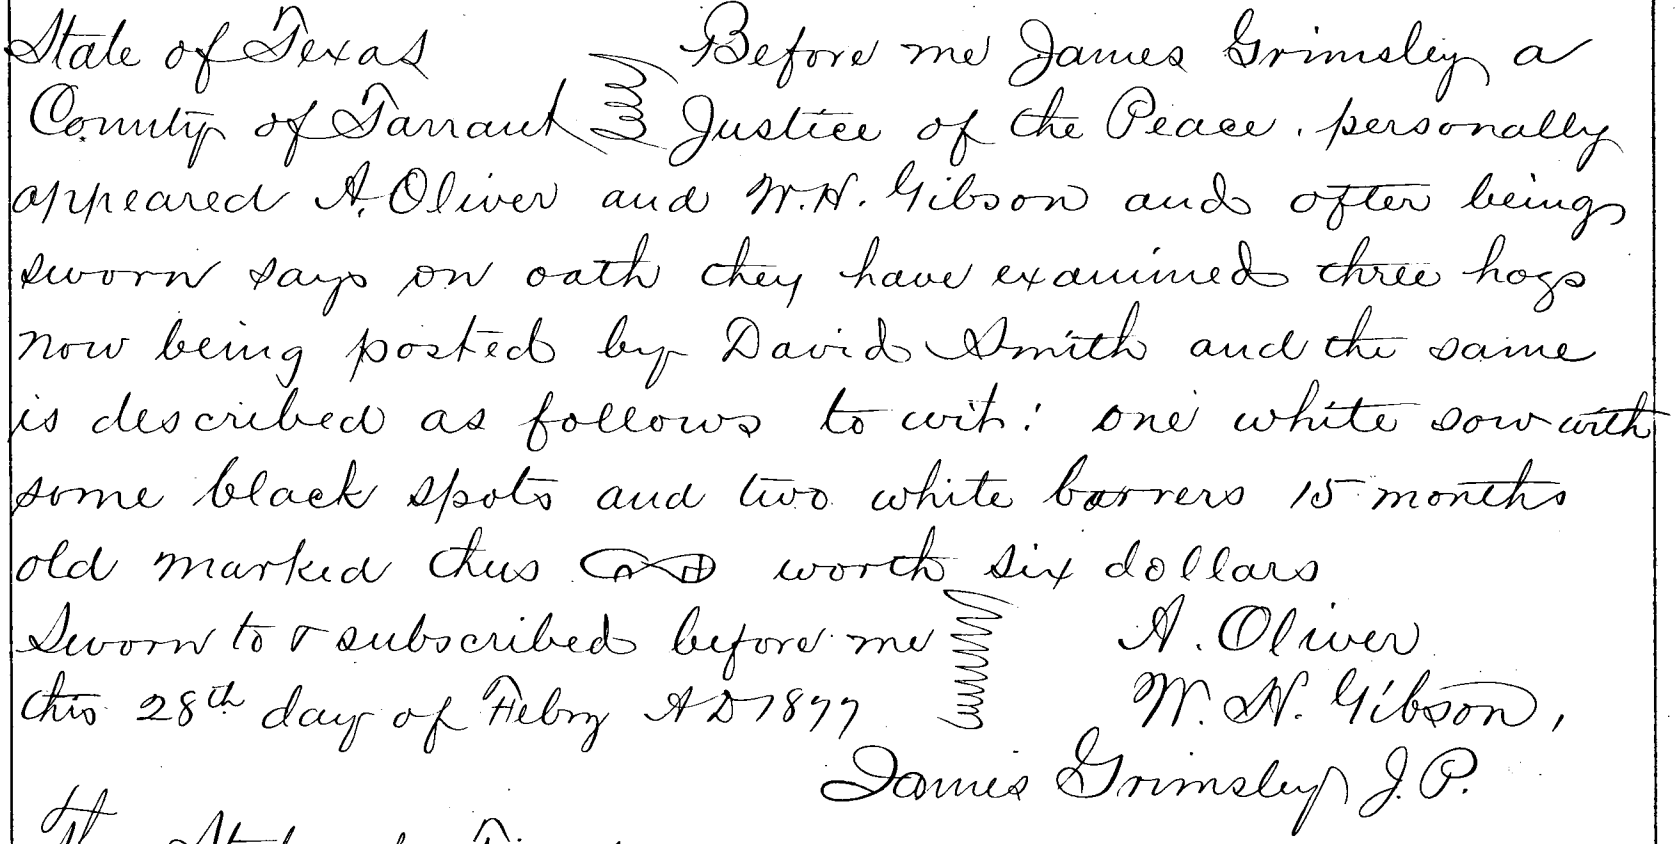 State of Texas Before me James Grimsley a
County of Tarrant Justice of the Peace, personally
appeared A. Oliver and W.H. Gibson and after being
sworn says on oath they have examined three hogs
now being posted by David Smith and the same
is described as follows to wit: one white sow with
some black spots and two white barrers 15 months
old marked thus worth six dollars
Sworn to & subscribed before me A. Oliver
this 28th day of Febry AD 1877 W. H. Gibson,
James Grimsley J.P.
The State of